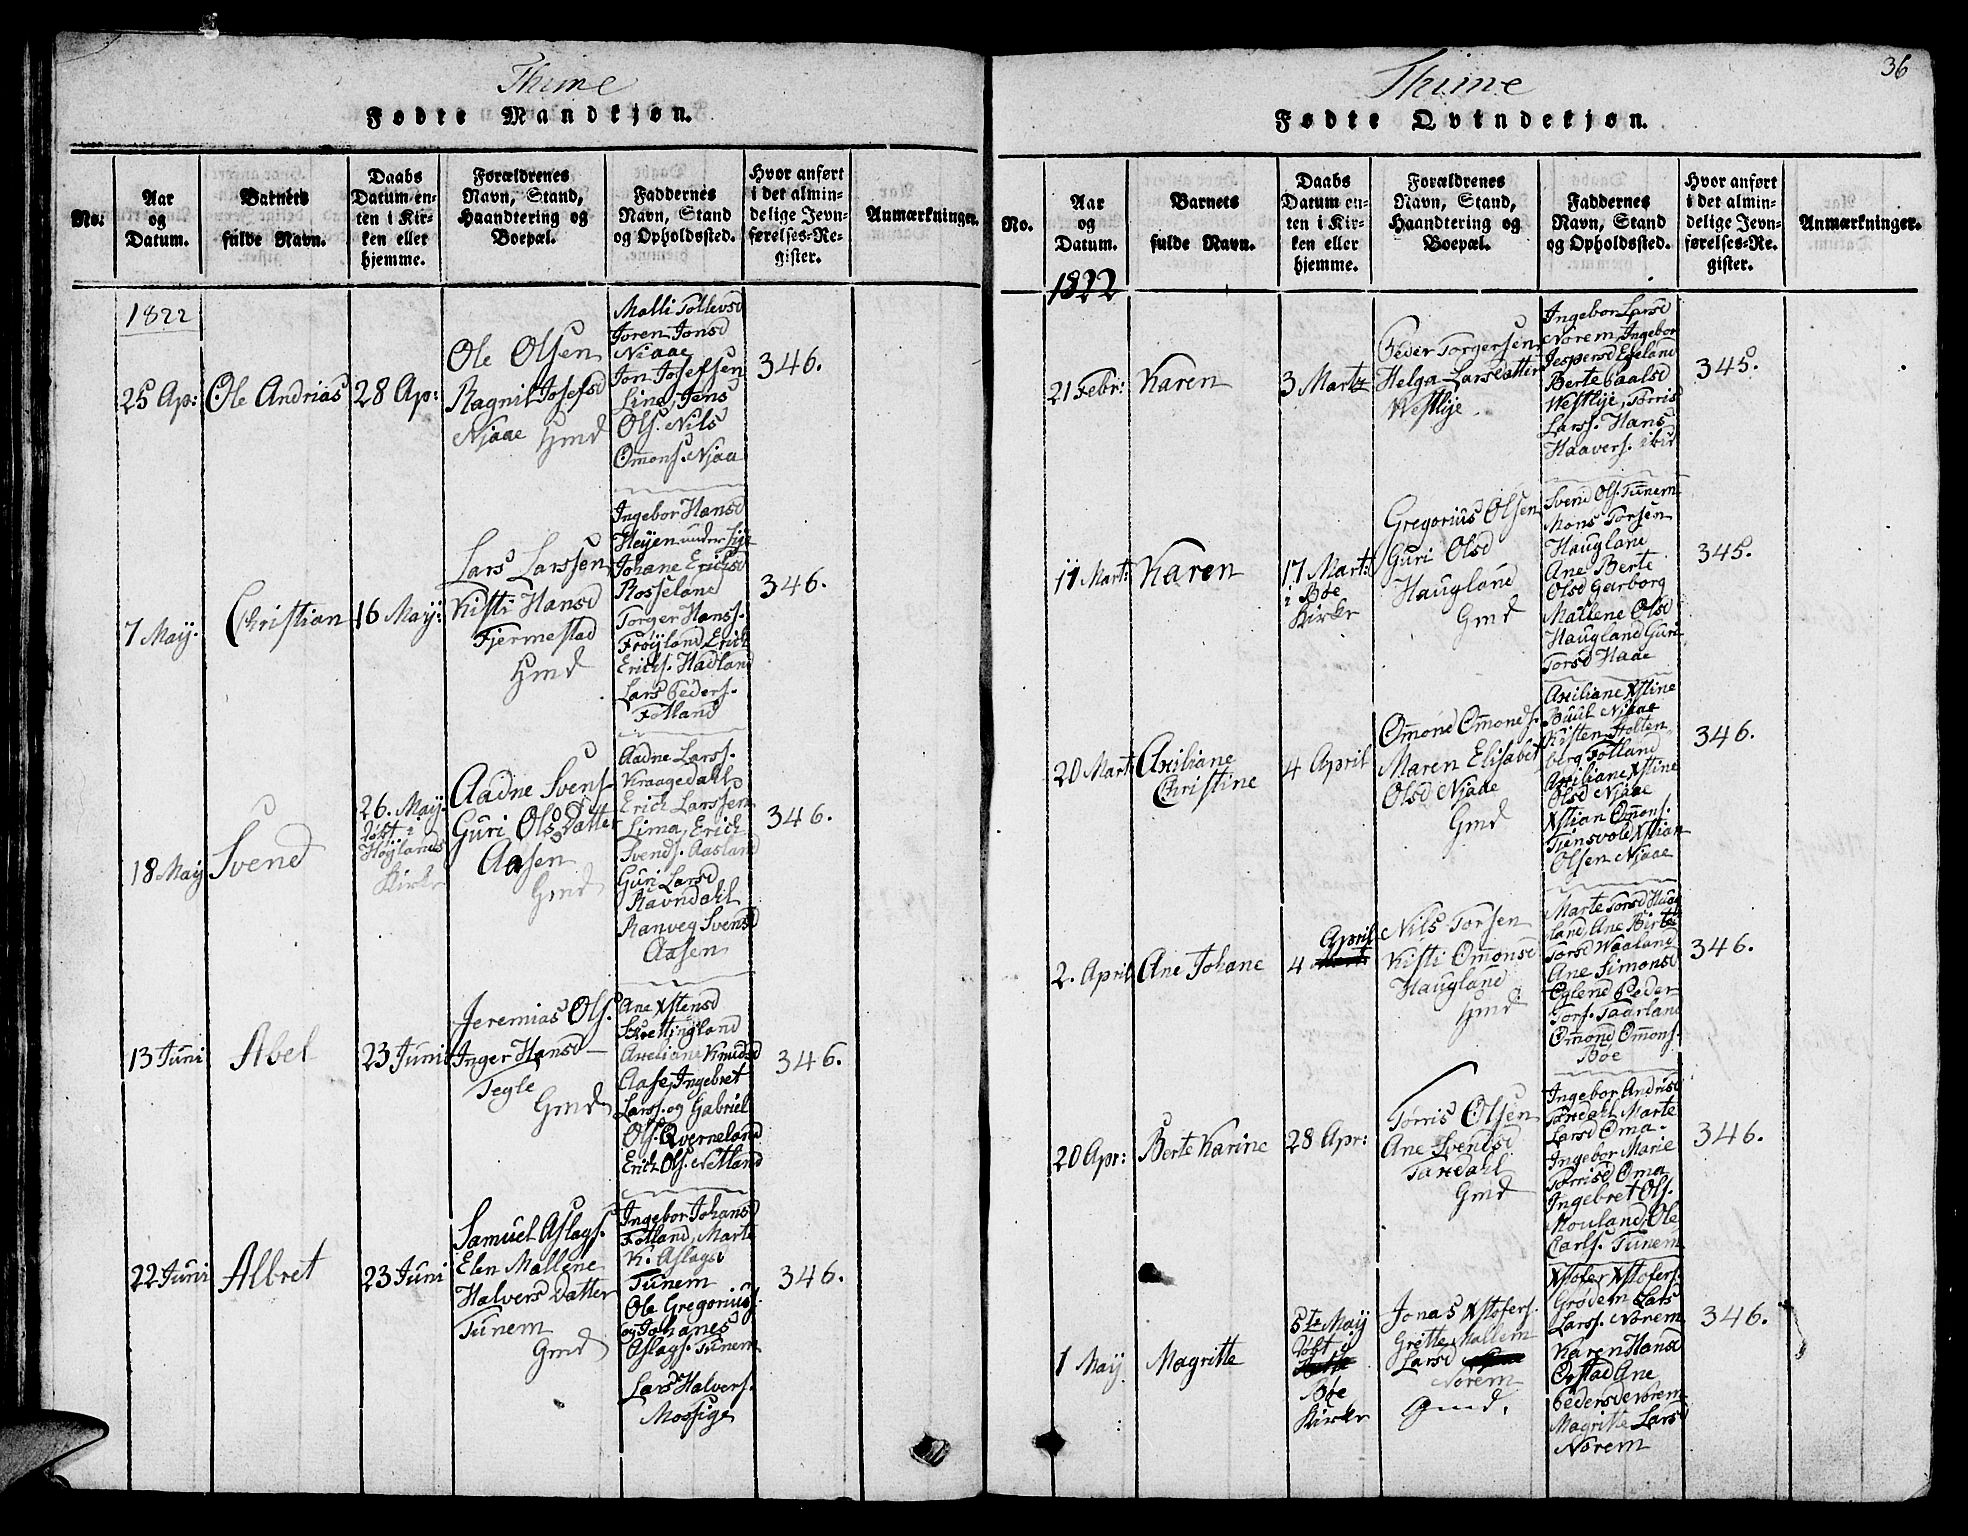 Thime
Fødte Mandkjøn.
No.
Aar
og
Datum.
Barnets
fulde Navn.
Daabs
Datum en-
ten i Kir-
ken eller
hjemme.
Forældrenes
Navn, Stand,
Haandtering og
Boepæl.
Faddernes
Navn, Stand
og Opholdssted.
Hvor anført
i det almin-
delige Jevn-
førelses-Re-
gister.
Anmærkninger.
1822
25 Ap:
Ole Andrias
28 Ap:
Ole Olsen
Ragnil Josefsd
Njaae Hmd
Malli Tollevsd
Joren Jonsd
Niaae
Jon Josefsen
Line, Jens
Ols. Nils
Omons. Njaa
346.
7 May.
Christian
16 May:
Lars Larssen
Kisti Hansd
Fjermestad
Hmd
Ingebor Hansd
Heyen under Lye
Johane Erichsd
Rosseland
Torger Hanss.
Frøyland Erich
Erichs. Hadland
Lars Peders.
Fotland
346.
18 May
Svend
26. May
døbt i
Høylands
Kirke
Aadne Svens
Guri OlsDatter
Aasen
Gmd
Aadne Larss.
Kraagedahl
Erich Larssen
Lima, Erich
Svends. Aasland
Guri Larsd
Ravndahl
Ranveg Svensd
Aasen
346.
13 Juni
Abel
23 Juni
Jeremias Ols.
Inger Hansd
Tegle
Gmd
Ane Xstensd
Skrettingland
Axeliane Knudsd
Aase, Ingebret
Larss. og Gabriel
Ols. Qverneland
Erich Ols. Netland
346.
22 Juni
Albret
23 Juni
Samuel Aslags.
Elen Mallene
Halvers Datter
Tunem
Gmd
Ingebor Johansd
Fotland, Marte
K. Aslagsd
Tunem
Ole Gregorius
og Johanes
Aslags. Tunem
Lars Halvers.
Mossige
346.
36
Thime
Fødte Qvindekjøn.
No.
Aar
og
Datum.
Barnets
fulde Navn.
Daabs
Datum en-
ten i Kir-
ken eller
hjemme.
Forældrenes
Navn, Stand,
Haandtering og
Boepæl.
Faddernes
Navn, Stand
og Opholdssted.
Hvor anført
i det almin-
delige Jevn-
førelses-Re-
gister.
Anmærkninger.
1822
21 Febr:
Karen
3 Martz
Peder Torgersen
Helga Larsdatter
Westlye
Ingebor Larsd
Norem, Ingebor
Jespersd Egeland
Berte Paalsd
Westlye, Torris
Larss. Hans
Haavers. ibid
345.
11 Mart:
Karen
17 Mart:
i Bøe
Kirke
Gregorius Olsen
Guri Olsd
Haugland
Gmd
Svend Ols. Tunem
Mons Torsen
Haugland
Ane Berte
Olsd Garborg
Mallene Olsd
Haugland Guri
Torsd Haae
345.
20 Mart:
Axiliane
Christine
4 April
Omond Omonds.
Maren Elisabet
Olsd Njaae
Gmd
Axiliane Xstine
Buul Njaae
Kisten Holten-
berg Fotland
Axiliane Xstine
Olsd Njaae
Xstian Omons.
Tunsvole Xstian
Olsen Njaae
346.
2. April
Ane Johane
4 April
Nils Torsen
Kisti Omonsd
Haugland
Hmd
Marte Torsd Haug
land, Ane Birte
Torsd Waaland
Ane Simonsd
Eglend Peder
Tors. Taarland
Omond Omons.
Bøe
346.
20 Apr:
Berte Karine
28 Apr:
Torris Olsen
Ane Svendsd
Taxdahl
Gmd
Ingebor Andrisd
Taxdahl Marte
Larsd Oma.
Ingebor Marie
Torrisd Oma
Ingebret Ols.
Mouland, Ole
Carls. Tunem
346.
1 May
Magritte
5te May
døbt i
Bøe
Kirke
Jonas Xstofers.
Gritte Mallem
Larsd
Norem
Gmd.
Xstofer Xstofers.
Grødem Lars
Larss. Norem
Karen Hansd
Orstad Ane
Pedersd Norem
Magritte Larsd
Norem
346.